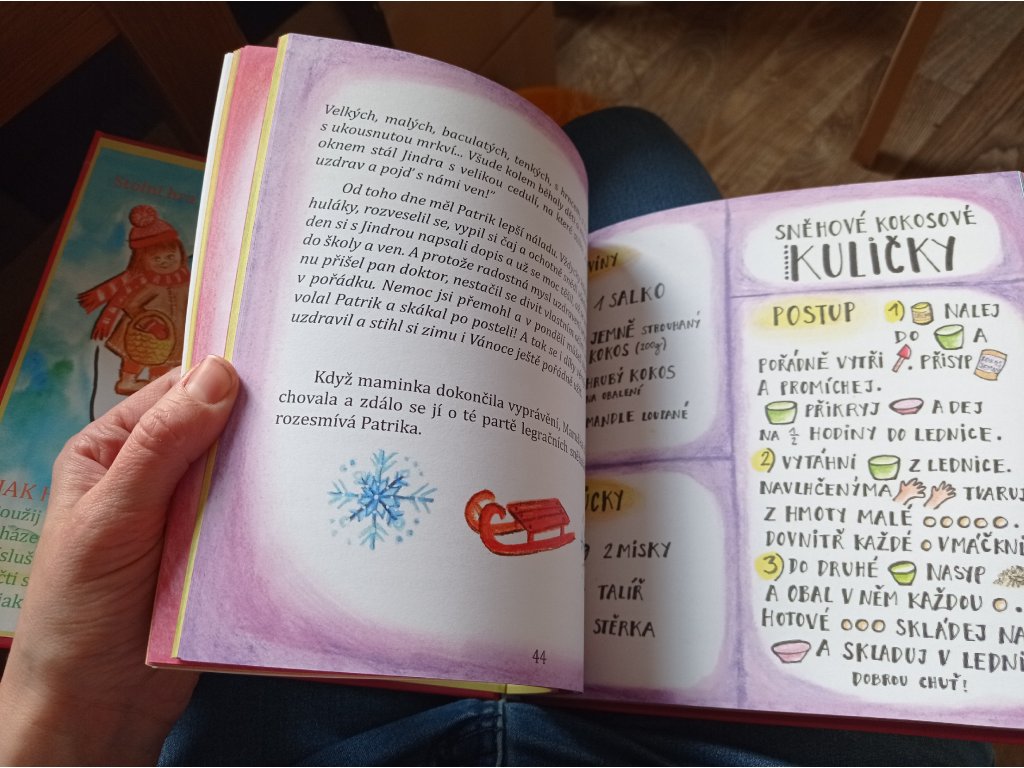 Velkých, malých, baculatých, tenkých, s hrncem
s ukousnutou mrkví... Všude kolem běhaly děti a
oknem stál Jindra s velikou cedulí, na které
uzdrav a pojď s námi ven!"
Od toho dne měl Patrik lepší náladu.
huláky, rozveselil se, vypil si čaj a ochotně snědl
den si s Jindrou napsali dopis a už se moc těšil
do školy a ven. A protože radostná mysl
nu přišel pan doktor, nestačil se divit vlastním
v pořádku. Nemoc jsi přemohl a v pondělí
volal Patrik a skákal po posteli! A tak se i díky
uzdravil a stihl si zimu i Vánoce ještě pořádně
Když maminka dokončila vyprávění,
chovala a zdálo se jí o té partě legračních
rozesmívá Patrika.
44
1 SALKO
JEMNĚ STROUHANÝ
KOKOS (200g)
HRUBÝ KOKOS
NA OBALENÍ
MANDLE LOUPANÉ
2 MISKY
TALÍŘ
STĚRKA
SNĚHOVÉ KOKOSOVÉ
KULIČKY
POSTUP 1) NALEJ
DO A
POŘÁDNĚ VYTŘI . PŘISYP
A PROMÍCHEJ.
PŘIKRYJ A DEJ
NA 1/2 HODINY DO LEDNICE.
2) VYTÁHNI Z LEDNICE.
NAVLHČENÝMA TVARUJ
Z HMOTY MALÉ .
DOVNITŘ KAŽDÉ VMÁČKNI
3) DO DRUHÉ NASYP
A OBAL V NĚM KAŽDOU .
HOTOVÉ SKLÁDEJ NA
A SKLADUJ V LEDNI
DOBROU CHUŤ!
Stolní
JAK